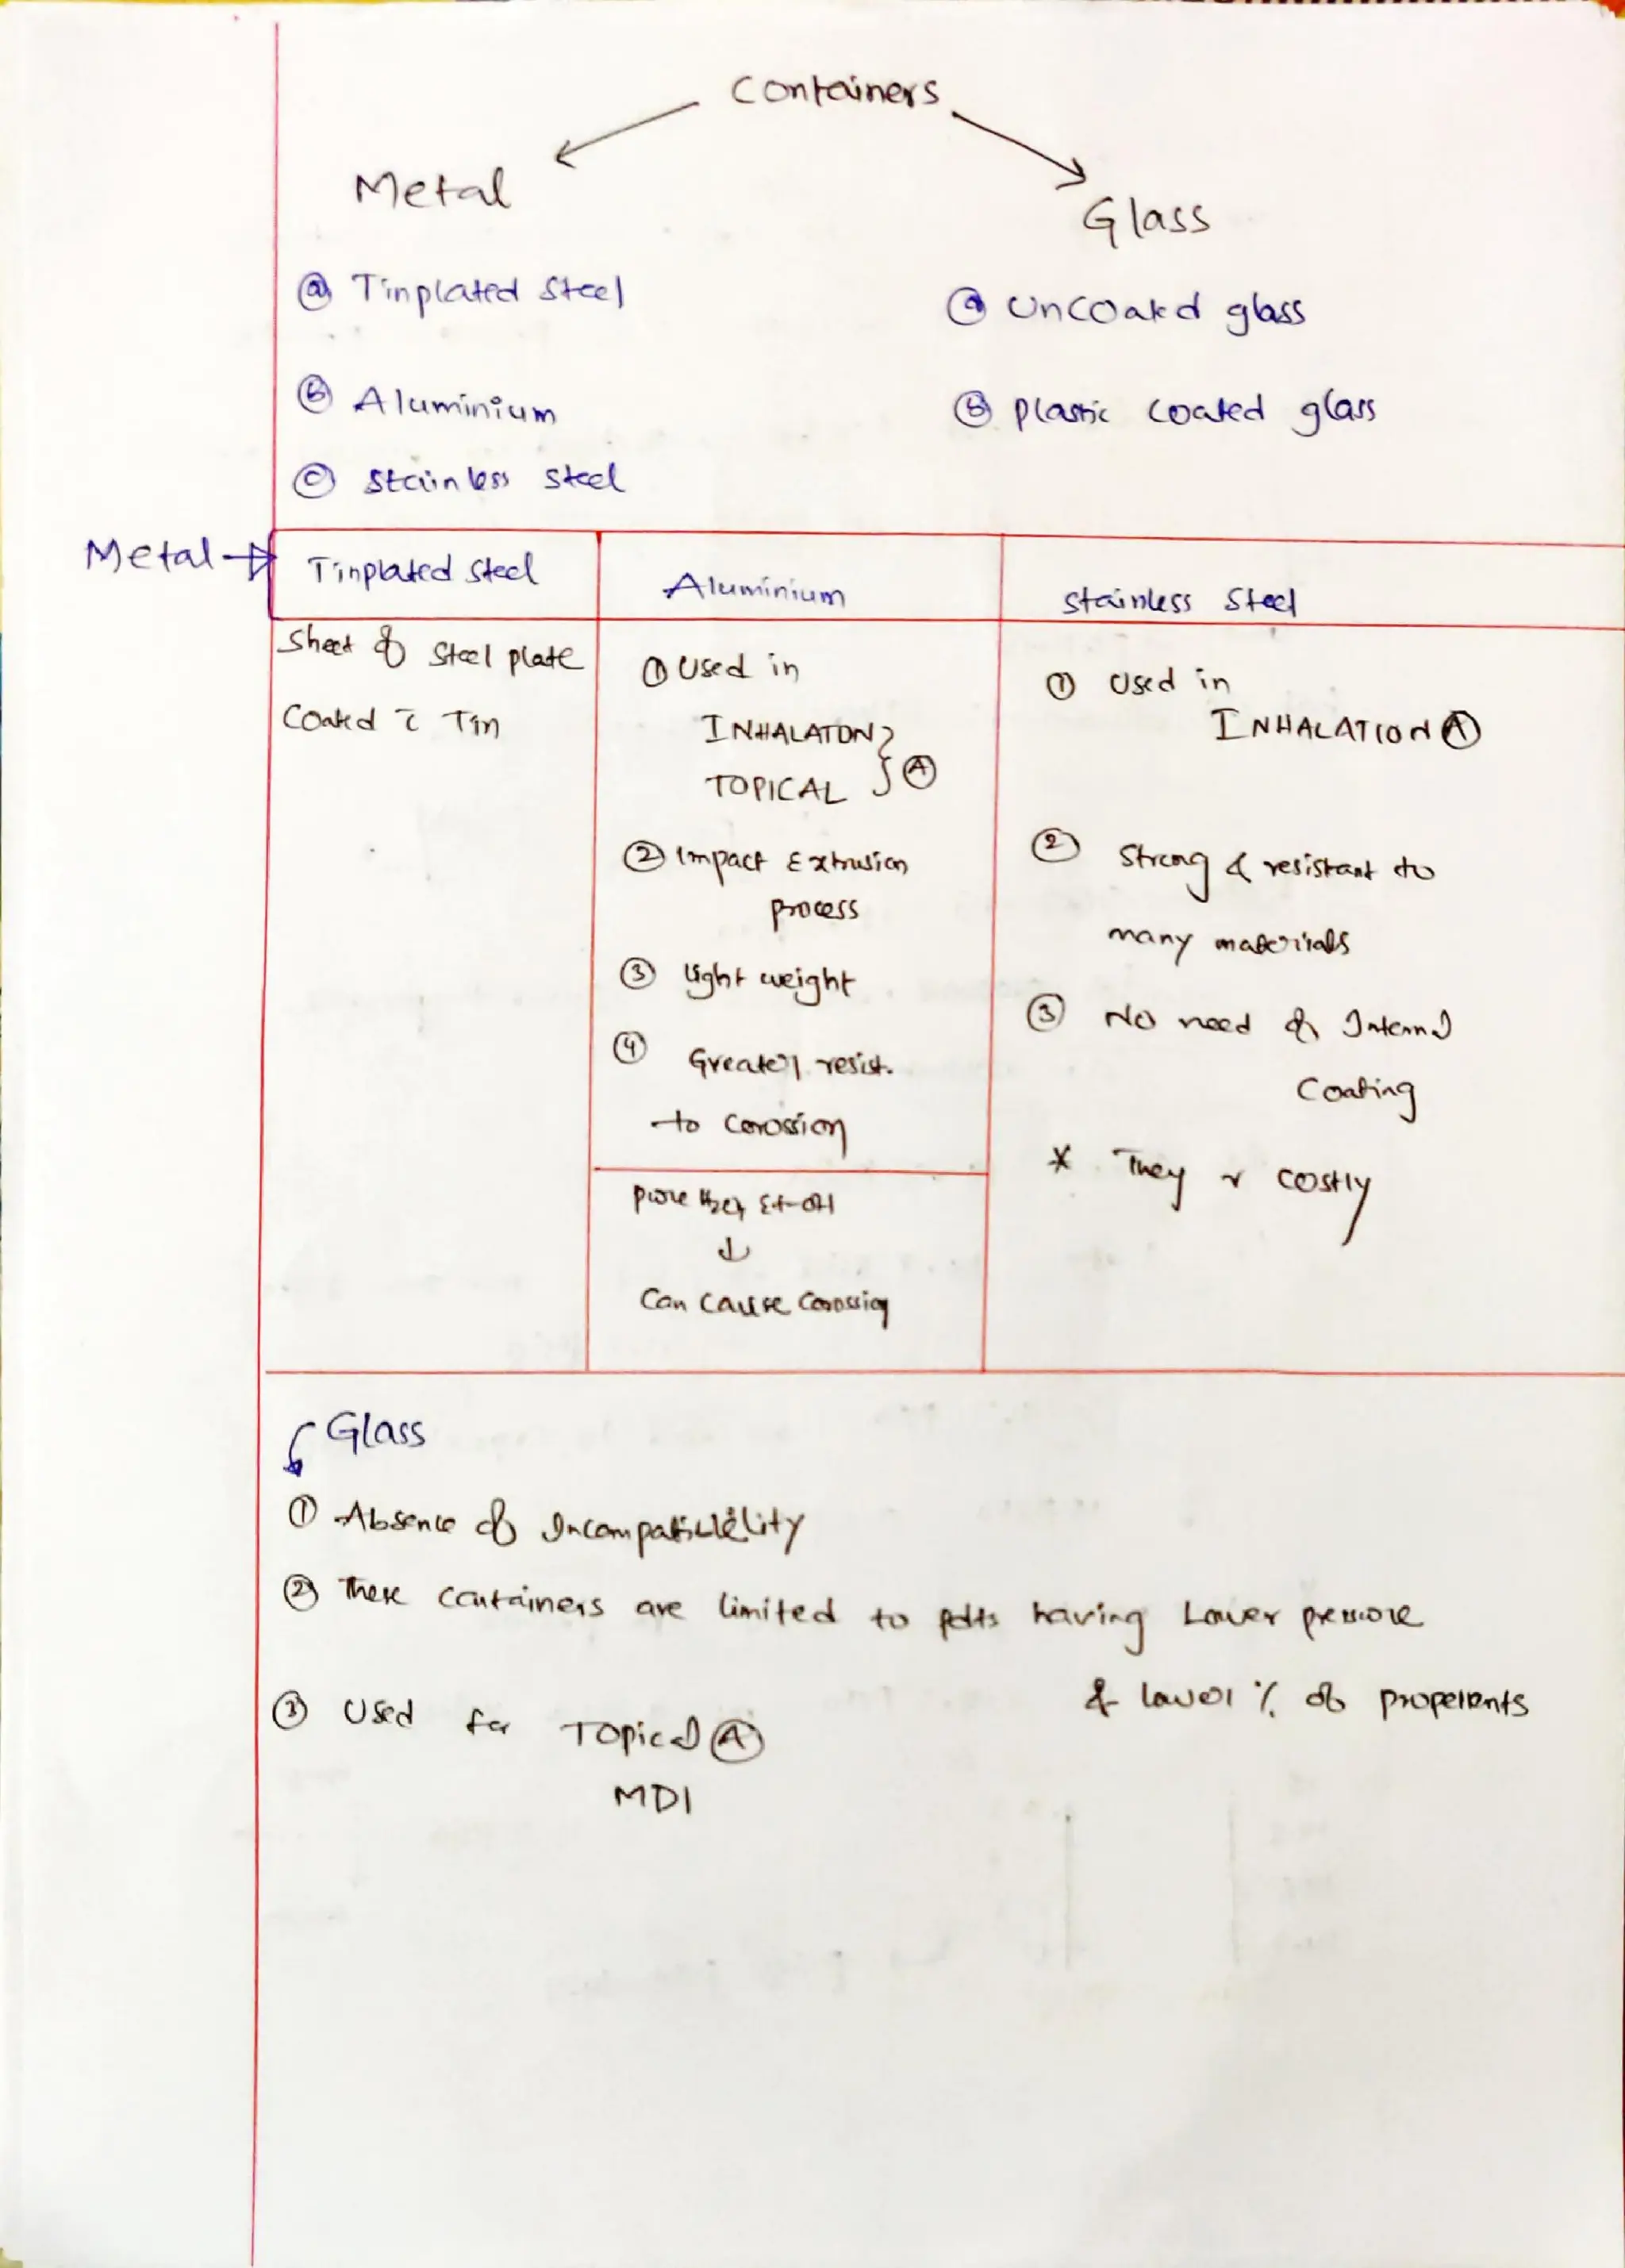 Containers
Metal
Glass
ⓐ Tinplated Steel
ⓐ Uncoated glass
ⓑ Aluminium
ⓑ Plastic coated glass
ⓒ Stainless steel
Metal →
Tinplated Steel
Aluminium
Stainless Steel
Sheet of Steel plate
Coated c̄ Tin
① Used in
INHALATON
TOPICAL } Ⓐ
② Impact Extrusion
process
③ light weight
④ Greater resist.
to Corossion
pure Et-OH
↓
Can cause Corossion
① Used in
INHALATION Ⓐ
② Strong & resistant to
many materials
③ No need of Internal
Coating
* They r costly
Glass
① Absence of Incompatibility
② These containers are limited to pdts having Lower pressure
& lower % of propellents
③ Used for Topical Ⓐ
MDI